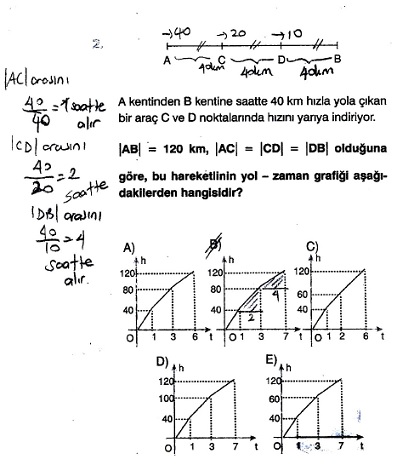 2.
→40 →20 →10
A C D B
40km 40km 40km
|AC| arasını
40/40 = 1 saatte
alır
|CD| arasını
40/20 = 2
saatte
|DB| arasını
40/10 = 4
saatte
alır.
A kentinden B kentine saatte 40 km hızla yola çıkan
bir araç C ve D noktalarında hızını yarıya indiriyor.
|AB| = 120 km, |AC| = |CD| = |DB| olduğuna
göre, bu hareketlinin yol – zaman grafiği aşağı-
dakilerden hangisidir?
A) h
120
80
40
O 1 3 6 t
B) h
120
80
40
2 4
O 1 3 7 t
C) h
120
60
40
O 1 2 6 t
D) h
120
100
40
O 1 3 7 t
E) h
120
60
40
O 1 3 7 t